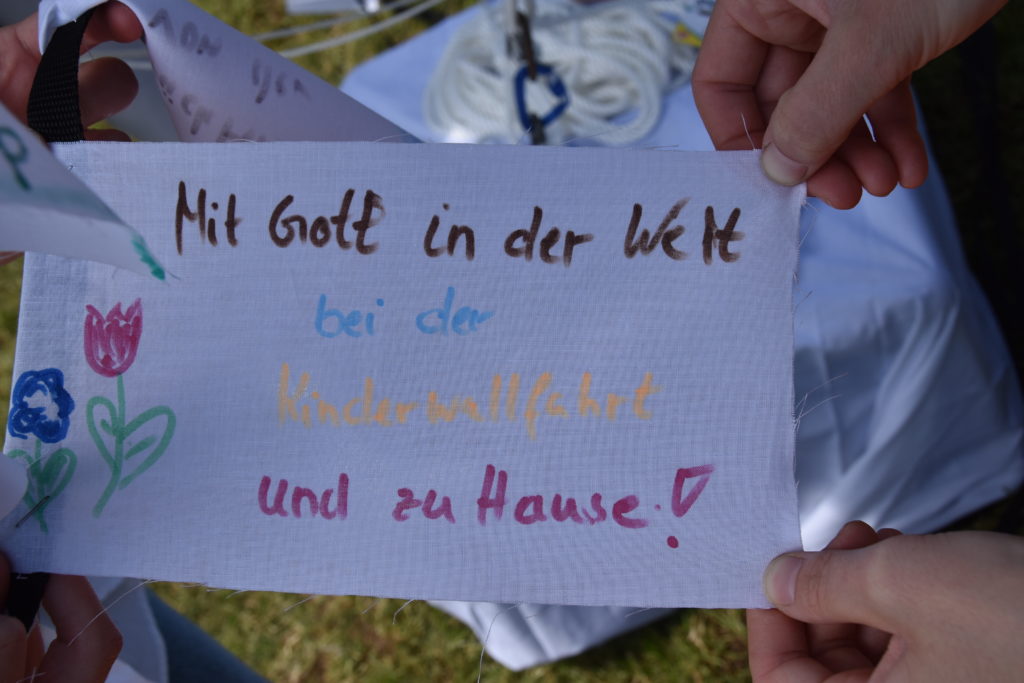 Mit Gott in der Welt
bei der
Kinderwallfahrt
und zu Hause!